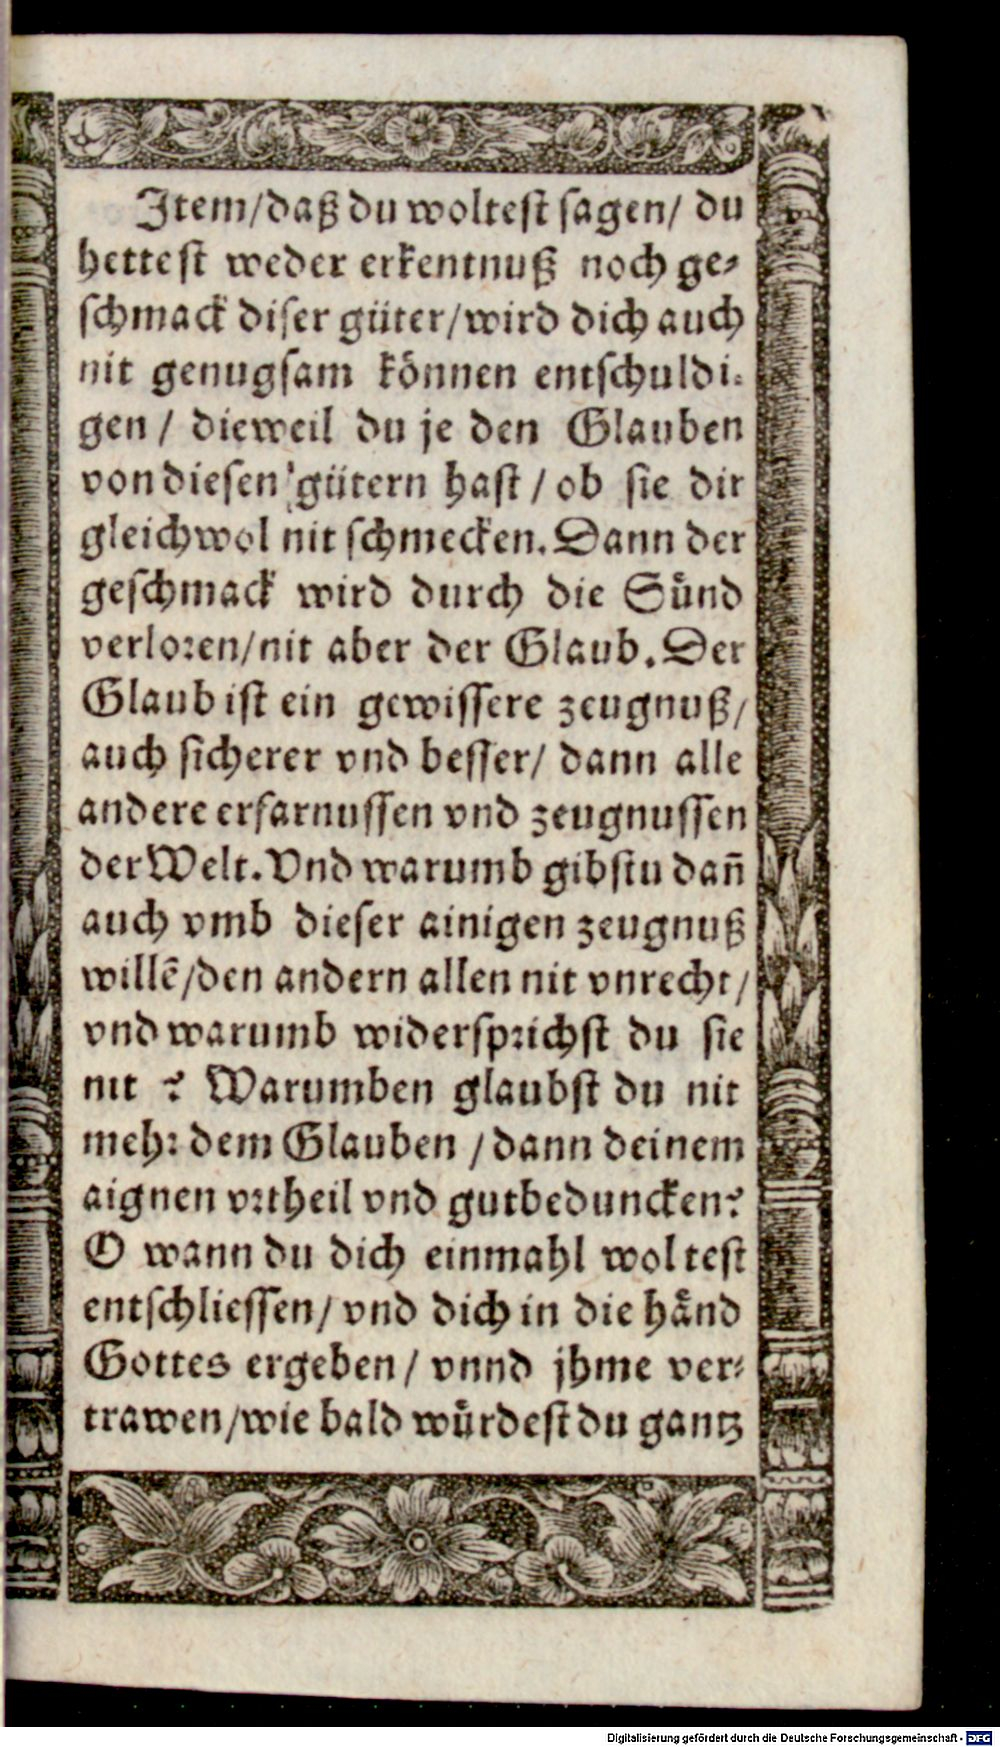 Item/daß du woltest sagen/ du
hettest weder erkentnuß noch ge-
schmack diser güter/wird dich auch
nit genugsam können entschuldi-
gen / dieweil du je den Glauben
von diesen gütern hast / ob sie dir
gleichwol nit schmecken. Dann der
geschmack wird durch die Sünd
verloren/nit aber der Glaub. Der
Glaub ist ein gewissere zeugnuß/
auch sicherer vnd besser/ dann alle
andere erfarnussen vnd zeugnussen
der Welt. Vnd warumb gibstu dañ
auch vmb dieser ainigen zeugnuß
willẽ/den andern allen nit vnrecht/
vnd warumb widersprichst du sie
nit ? Warumben glaubst du nit
mehr dem Glauben / dann deinem
aignen vrtheil vnd gutbeduncken?
O wann du dich einmahl woltest
entschliessen/ vnd dich in die händ
Gottes ergeben/ vnnd jhme ver-
trawen/wie bald würdest du gantz
Digitalisierung gefördert durch die Deutsche Forschungsgemeinschaft - DFG